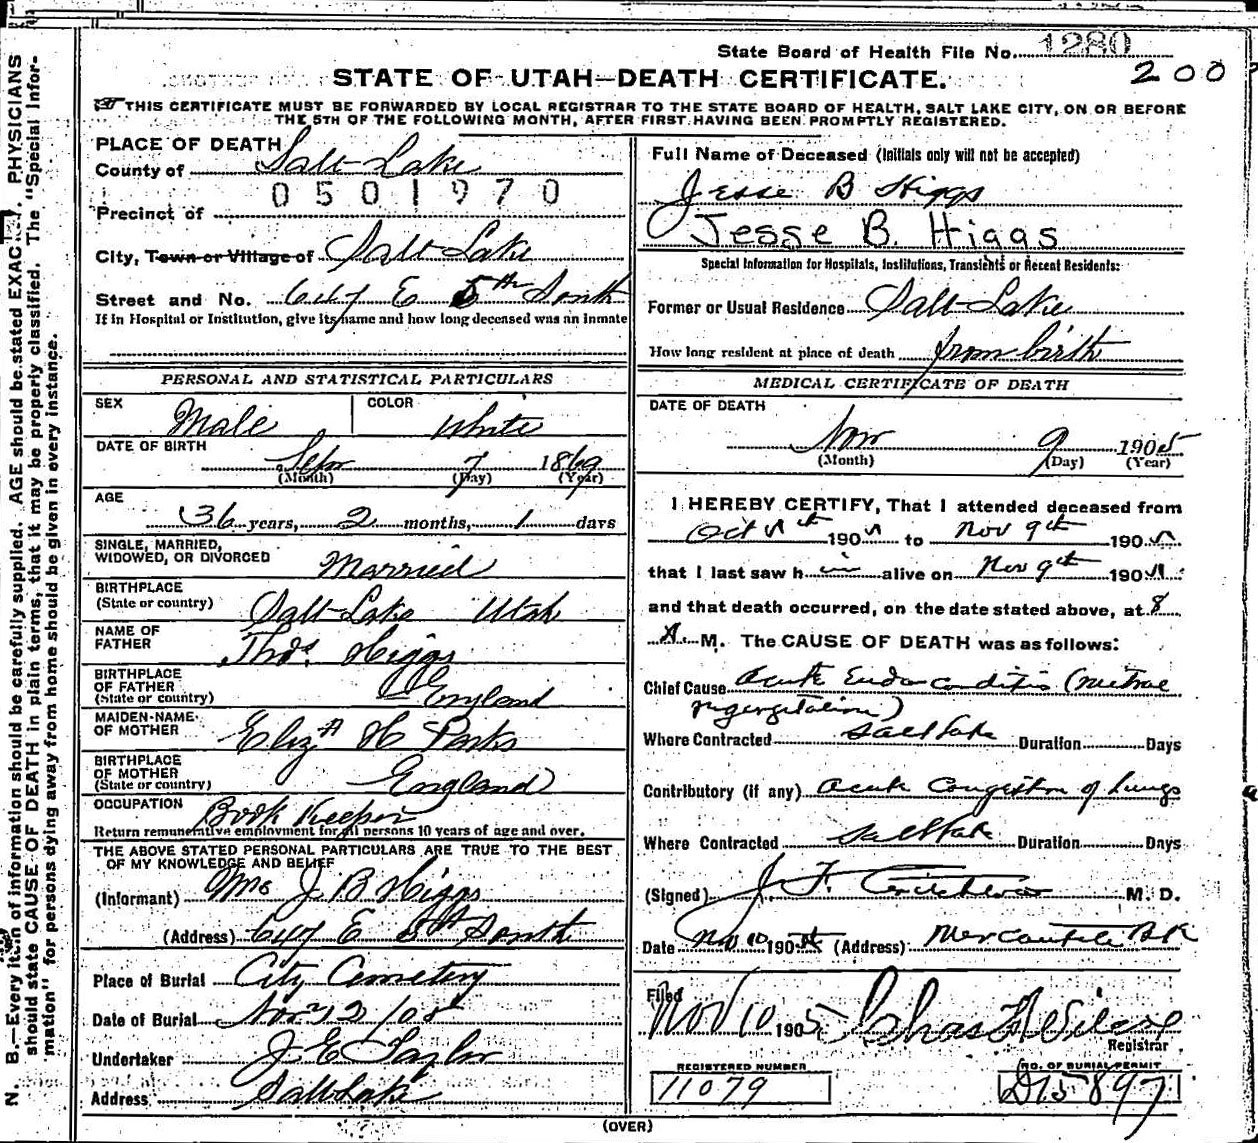 State Board of Health File No. 1280
200
STATE OF UTAH—DEATH CERTIFICATE.
THIS CERTIFICATE MUST BE FORWARDED BY LOCAL REGISTRAR TO THE STATE BOARD OF HEALTH, SALT LAKE CITY, ON OR BEFORE
THE 5TH OF THE FOLLOWING MONTH, AFTER FIRST HAVING BEEN PROMPTLY REGISTERED.
PLACE OF DEATH
County of Salt Lake
0501970
Precinct of
City, Town or Village of Salt Lake
Street and No. 647 E 5th South
If in Hospital or Institution, give its name and how long deceased was an inmate
PERSONAL AND STATISTICAL PARTICULARS
SEX Male COLOR White
DATE OF BIRTH
Sep 7 1869
(Month) (Day) (Year)
AGE
36 years, 2 months, 1 days
SINGLE, MARRIED,
WIDOWED, OR DIVORCED Married
BIRTHPLACE
(State or country) Salt Lake Utah
NAME OF
FATHER Thos. Higgs
BIRTHPLACE
OF FATHER
(State or country) England
MAIDEN-NAME
OF MOTHER Eliz H Parks
BIRTHPLACE
OF MOTHER
(State or country) England
OCCUPATION Book Keeper
Return remunerative employment for all persons 10 years of age and over.
THE ABOVE STATED PERSONAL PARTICULARS ARE TRUE TO THE BEST
OF MY KNOWLEDGE AND BELIEF
(Informant) Mrs J B Higgs
(Address) 647 E 5th South
Place of Burial City Cemetery
Date of Burial Nov 12/05
Undertaker J E Taylor
Address Salt Lake
Full Name of Deceased (Initials only will not be accepted)
Jesse B Higgs
Jesse B. Higgs
Special Information for Hospitals, Institutions, Transients or Recent Residents:
Former or Usual Residence Salt Lake
How long resident at place of death from birth
MEDICAL CERTIFICATE OF DEATH
DATE OF DEATH
Nov 9 1905
(Month) (Day) (Year)
I HEREBY CERTIFY, That I attended deceased from
Oct 5th 1905 to Nov 9th 1905
that I last saw him alive on Nov 9th 1905
and that death occurred, on the date stated above, at 8
A. M. The CAUSE OF DEATH was as follows:
Chief Cause Acute Endocarditis (Mitral
regurgitation)
Where Contracted Salt Lake Duration Days
Contributory (if any) Acute Congestion of Lungs
Where Contracted Salt Lake Duration Days
(Signed) J. F. Critchlow M. D.
Date Nov 10 1905 (Address) Mercantile Bk
Filed
Nov 10 1905 Chas
Registrar
REGISTERED NUMBER
11079
NO. OF BURIAL PERMIT
D15897
(OVER)
N. B.—Every item of information should be carefully supplied. AGE should be stated EXACTLY. PHYSICIANS
should state CAUSE OF DEATH in plain terms, that it may be properly classified. The "Special Infor-
mation" for persons dying away from home should be given in every instance.